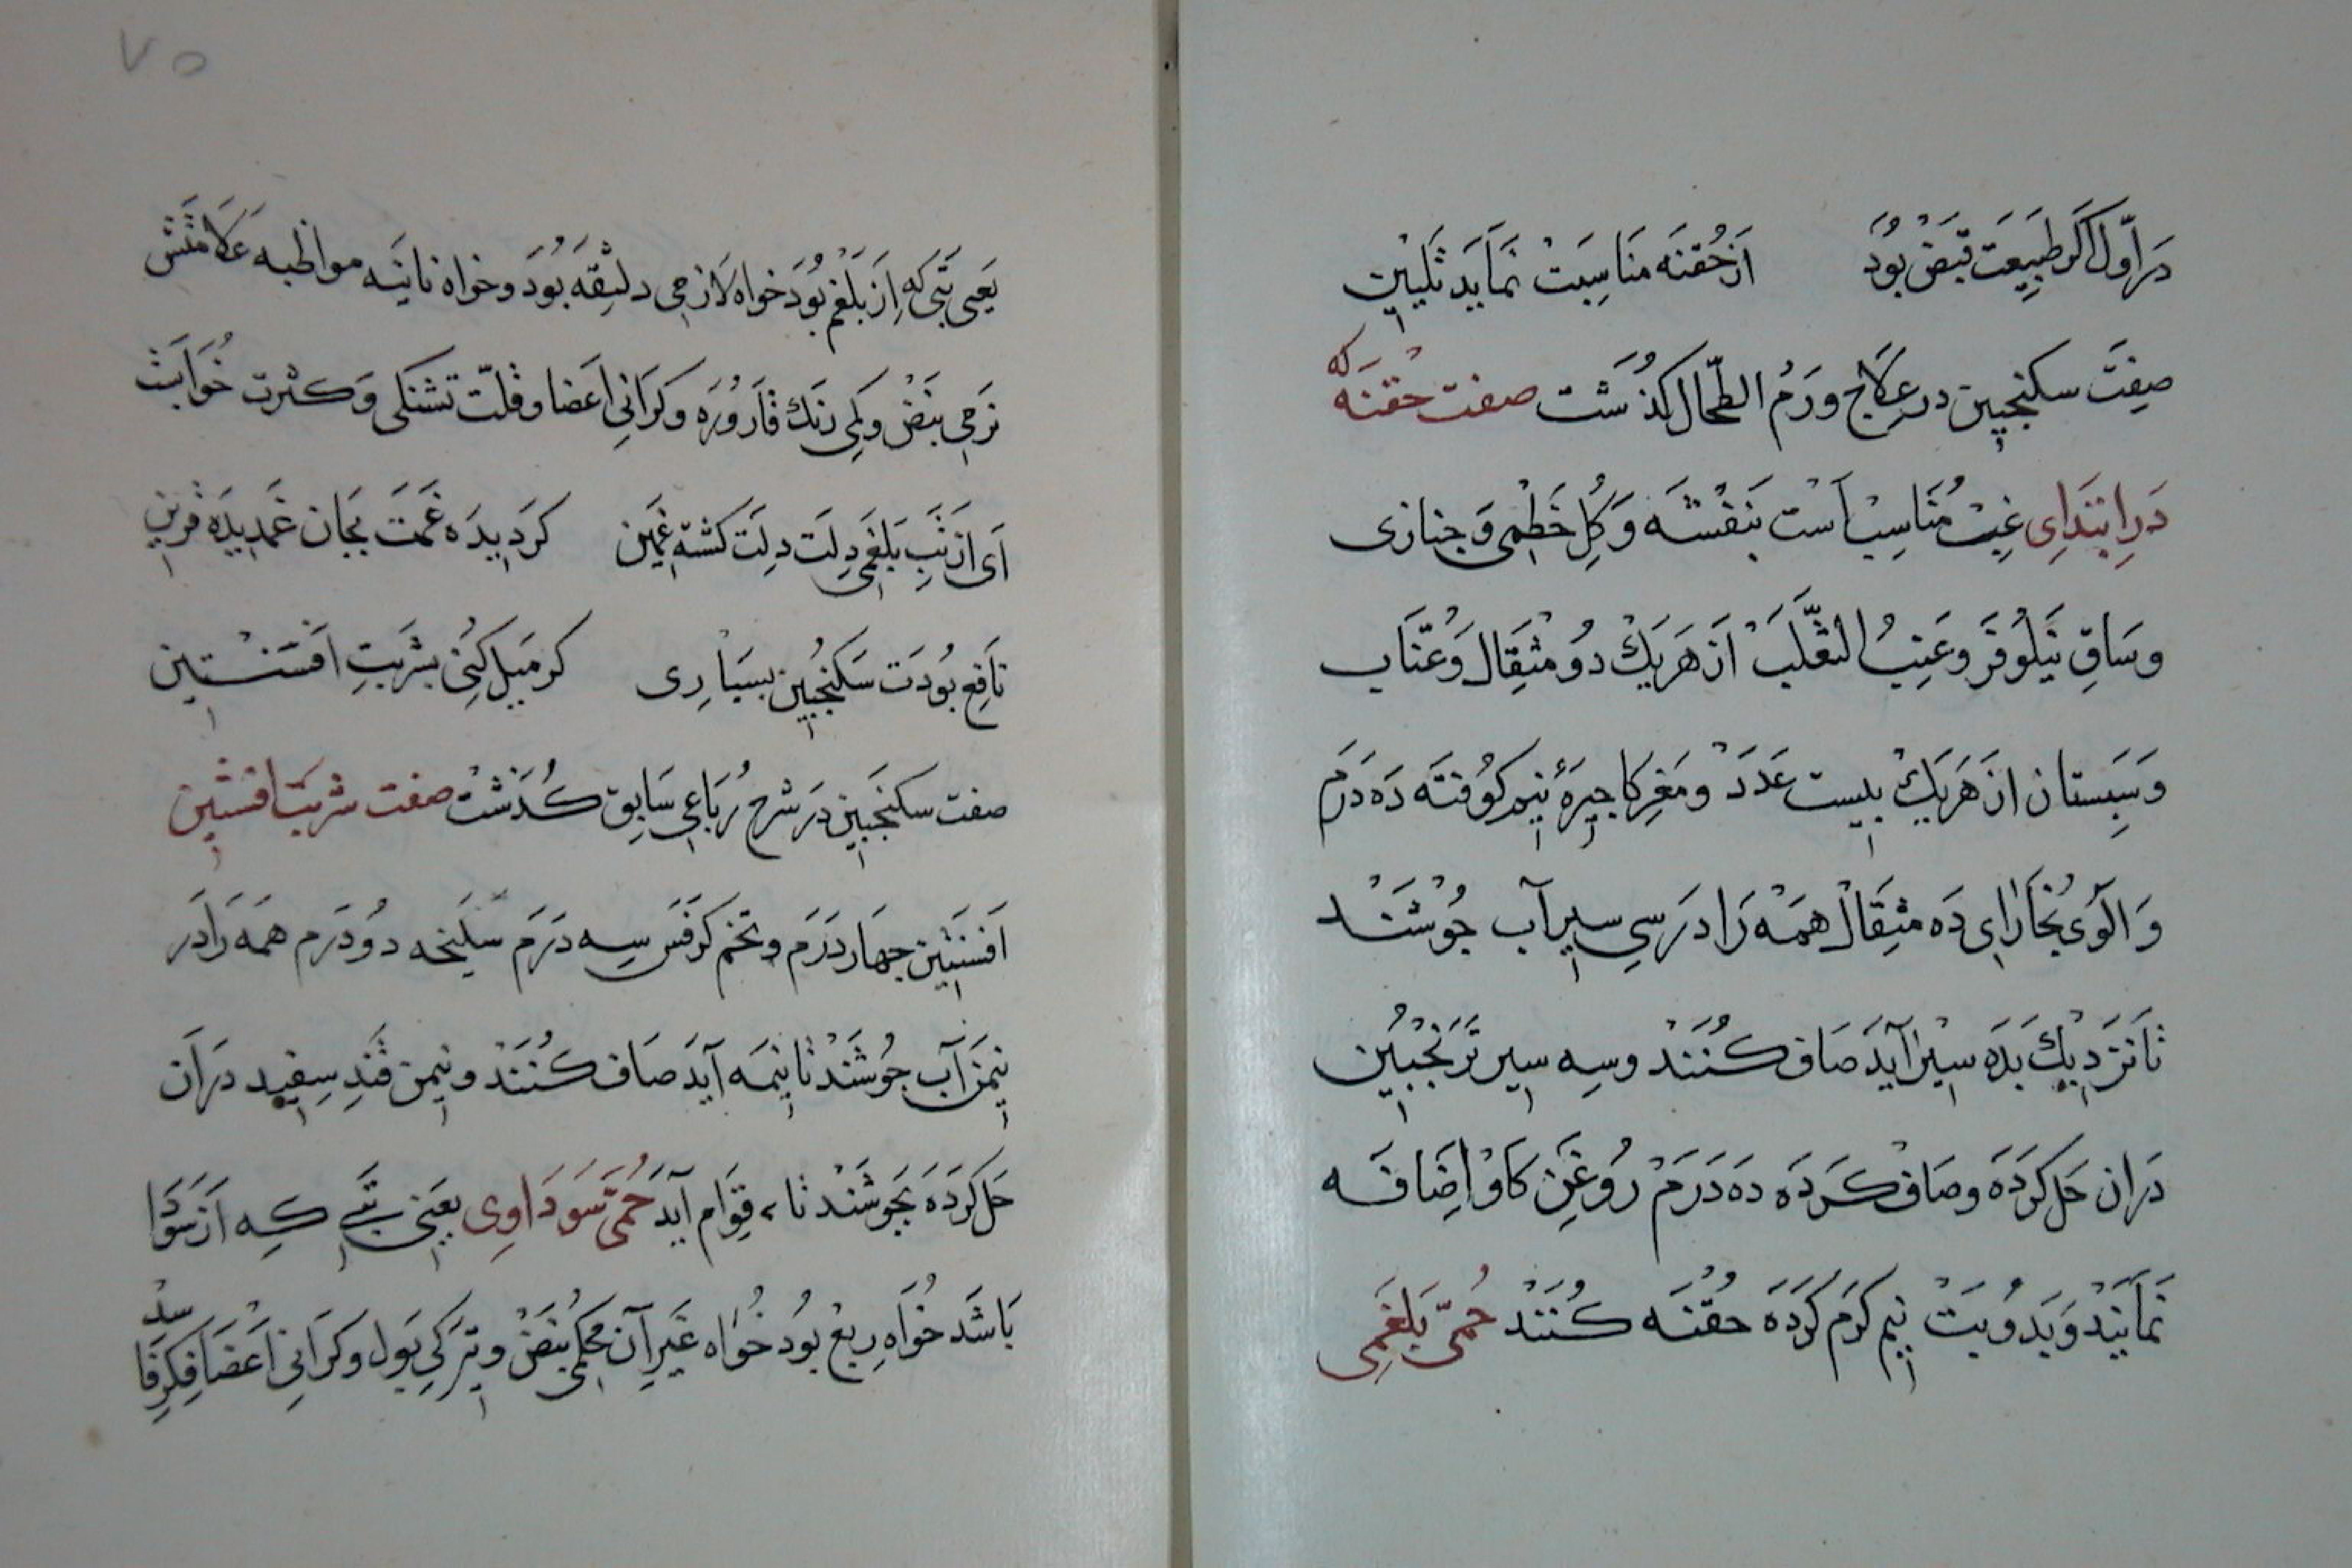 در اول اگر طبیعت قبض بود از حقنه مناسبت نماید تلیین
صفت سکنجبین در علاج ورم الطحال کذشت صفت حقنه که
در ابتدای غب مناسب است بنفشه و کل خطمی و خبازی
و ساق نیلوفر و عنب الثعلب از هر یک دو مثقال و عناب
و سپستان از هر یک بیست عدد و مغز کاجیره نیم کوفته ده درم
و آلوی بخارای ده مثقال همه را در سی سیر آب جوشند
تا نزدیک بده سیر آید صاف کنند و سه سیر ترنجبین
در آن حل کرده و صاف کرده ده درم روغن کاو اضافه
نمایند و بدوبت نیم کرم کرده حقنه کنند حمی بلغمی
٧٥
یعنی تبی که از بلغم بود خواه لازمی دلثقه بود و خواه نائبه مواظبه علامتش
نرمی نبض و کمی رنک قاروره و کرانی اعضا و قلت تشنکی و کثرت خوابت
ای از تب بلغمی دلت دلت کشته غمین کردیده غمت بجان غمدیده قرین
نافع بودت سکنجبین بسیاری کر میل کنی بشربت افسنتین
صفت سکنجبین در شرح رباعی سابق کذشت صفت شربت افسنتین
افسنتین جهار درم و تخم کرفس سه درم سلیخه دو درم همه را در
نیمن آب جوشند تا نیمه آید صاف کنند و نیمن قند سفید در آن
حل کرده بجوشند تا قوام آید حمی سوداوی یعنی تبی که از سودا
باشد خواه ربع بود خواه غیر آن محکمی نبض و تیرکی بول و کرانی اعضا فکر فاسد